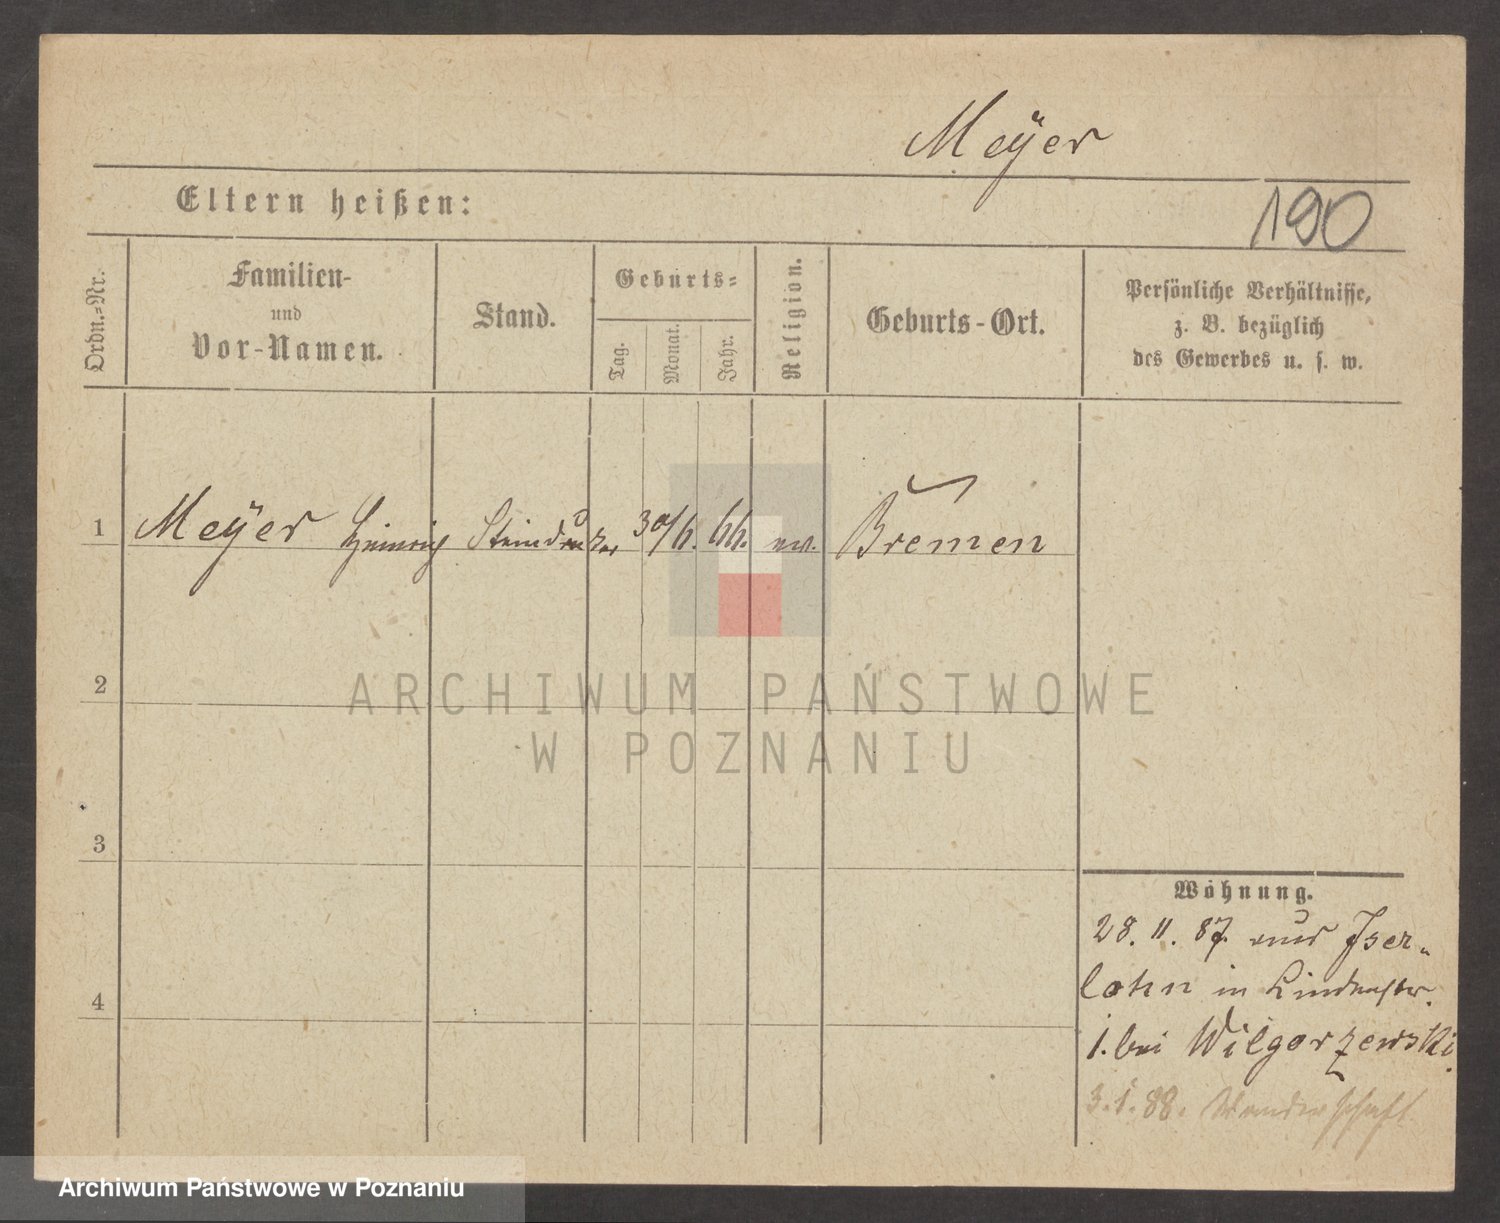 Meÿer
Eltern heißen:
190
Ordn.-Nr.
Familien-
und
Vor-Namen.
Stand.
Geburts-
Tag.
Monat.
Jahr.
Religion.
Geburts-Ort.
Persönliche Verhältnisse,
z. B. bezüglich
des Gewerbes u. s. w.
1 Meÿer Heinrich Steindrucker 30/6. 66. ev. Bremen
2
ARCHIWUM PAŃSTWOWE
W POZNANIU
3
Wohnung.
28. 11. 87. aus Iser-
lohn in Lindenstr.
4
1. bei Wilgorzewski.
3. 1. 88. Wanderschaft
Archiwum Państwowe w Poznaniu